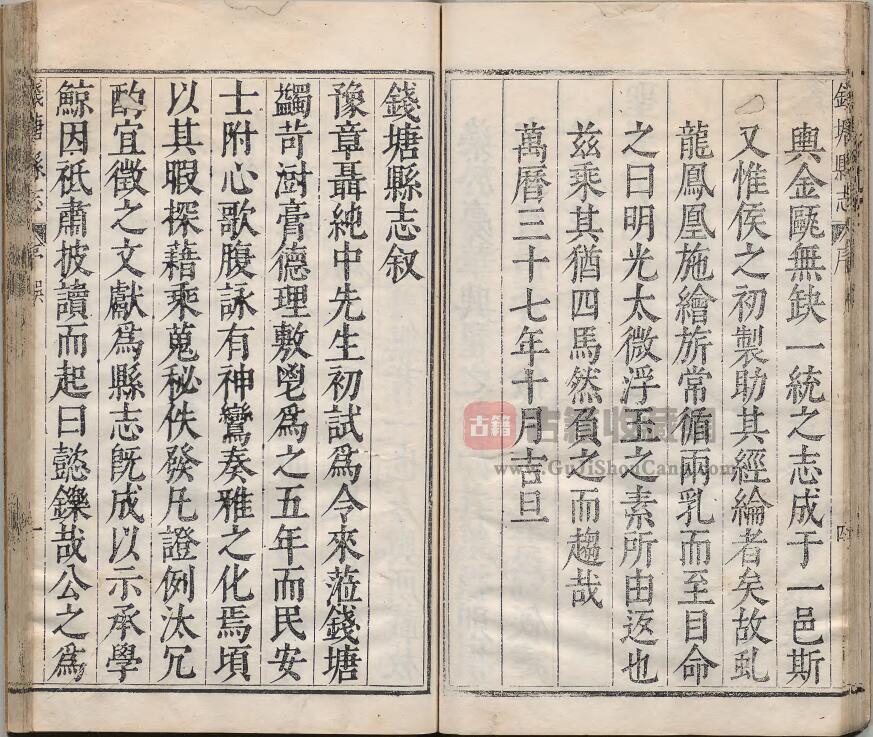 錢塘縣志 序 四
輿金甌無缺一統之志成于一邑斯
又惟侯之初製助其經綸者矣故虬
龍鳳凰施繪旂常循兩乳而至目命
之曰明光太微浮玉之素所由返也
兹乘其猶四馬然負之而趨哉
萬曆三十七年十月吉旦
錢塘縣志叙
豫章聶純中先生初試爲今來蒞錢塘
蠲苛澍膏德理敷鬯爲之五年而民安
士附心歌腹詠有神鸞奏雅之化焉頃
以其暇探藉乘蒐秘佚發凡證例汰冗
酌宜徵之文獻爲縣志旣成以示承學
鯨因祗肅披讀而起曰懿鑠哉公之爲
錢塘縣志 一
古籍
古籍收藏网
www.GuJiShouCang.com